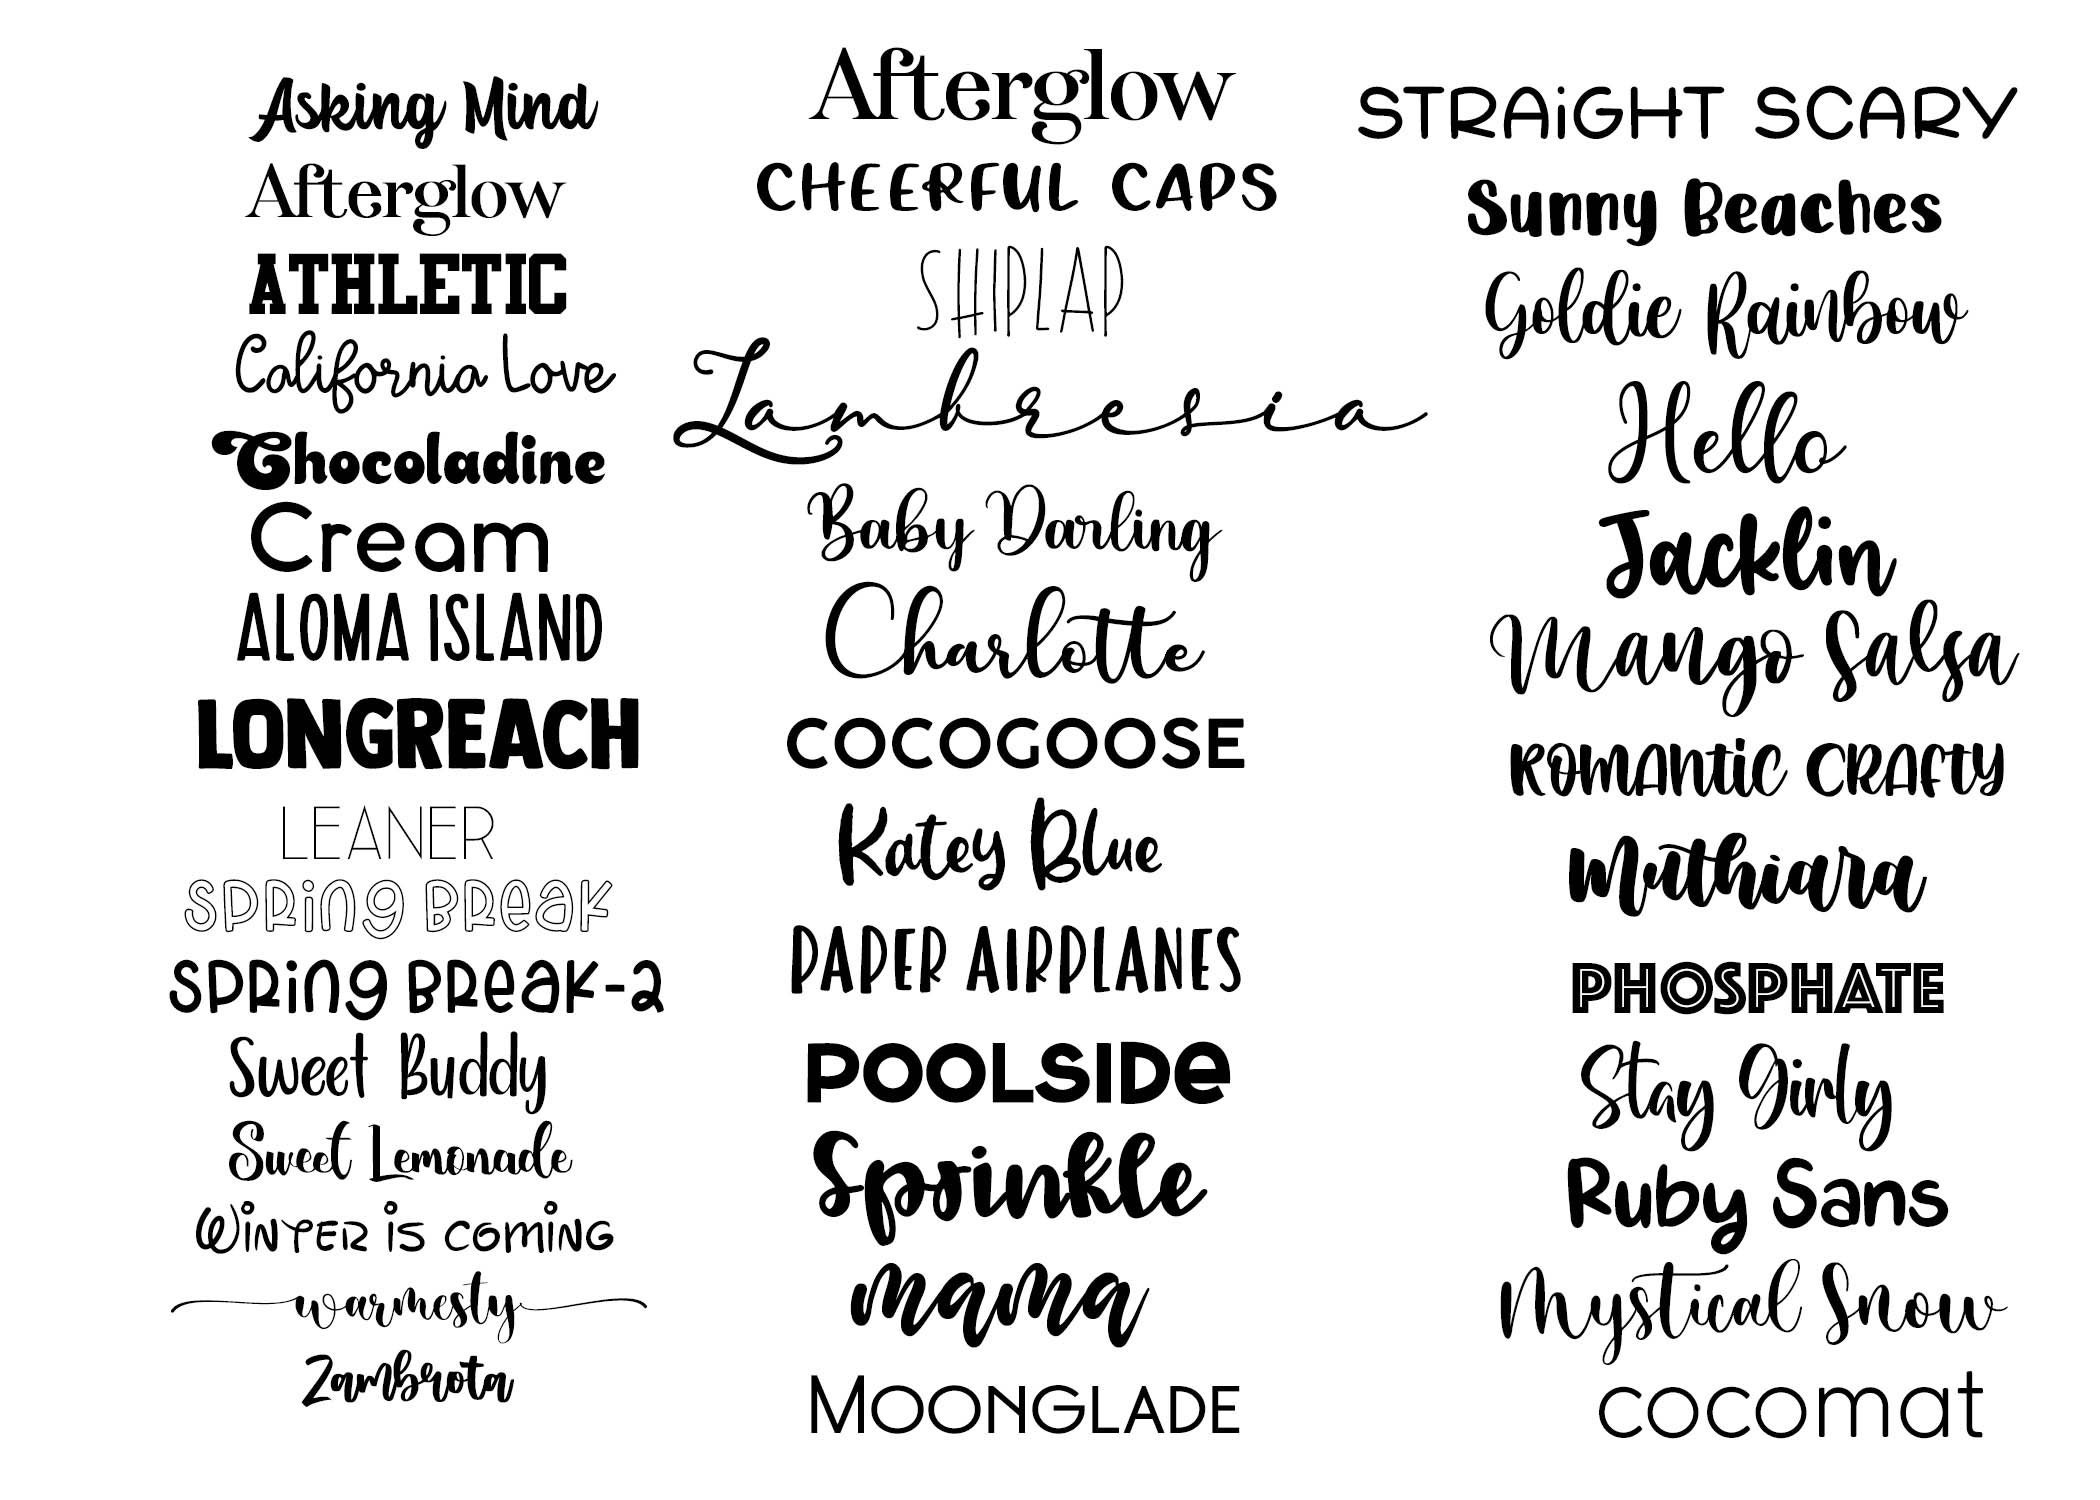 Asking Mind
Afterglow
ATHLETIC
California Love
Chocoladine
Cream
ALOMA ISLAND
LONGREACH
LEANER
SPRing BReaK
SPRing BReaK-2
Sweet Buddy
Sweet Lemonade
WINTER is coming
warmesty
Zambrota
Afterglow
CHEERFUL CAPS
SHIPLAP
Lambresia
Baby Darling
Charlotte
COCOGOOSE
Katey Blue
PAPER AIRPLANES
POOLSIDe
Sprinkle
mama
MOONGLADE
STRAiGHT SCARY
Sunny Beaches
Goldie Rainbow
Hello
Jacklin
Mango Salsa
ROMANtic CRAfty
Muthiara
PHOSPHATE
Stay Girly
Ruby Sans
Mystical Snow
cocomat